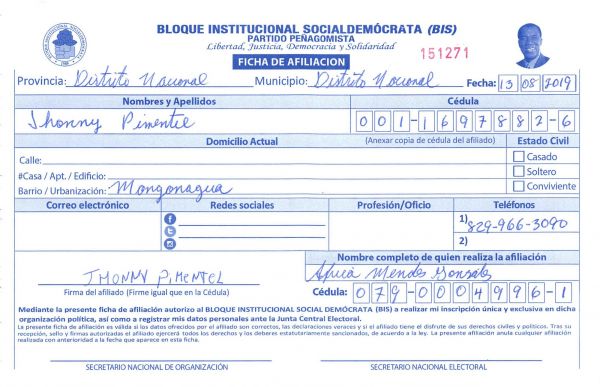 BLOQUE INSTITUCIONAL SOCIALDEMÓCRATA (BIS)
PARTIDO PEÑAGOMISTA
Libertad, Justicia, Democracia y Solidaridad
FICHA DE AFILIACION
151271
Provincia: Distrito Nacional Municipio: Distrito Nacional Fecha: 13 08 2019
Nombres y Apellidos Cédula
Jhonny Pimentel 001-1697882-6
Domicilio Actual (Anexar copia de cédula del afiliado) Estado Civil
Calle: Casado
#Casa / Apt. / Edificio: Soltero
Barrio / Urbanización: Mongonagua Conviviente
Correo electrónico Redes sociales Profesión/Oficio Teléfonos
1) 829-966-3090
2)
Nombre completo de quien realiza la afiliación
JHONNY PIMENTEL Mendes Gonsales
Firma del afiliado (Firme igual que en la Cédula) Cédula: 079-0004996-1
Mediante la presente ficha de afiliación autorizo al BLOQUE INSTITUCIONAL SOCIAL DEMÓCRATA (BIS) a realizar mi inscripción única y exclusiva en dicha
organización política, así como a registrar mis datos personales ante la Junta Central Electoral.
La presente ficha de afiliación es válida si los datos ofrecidos por el afiliado son correctos, las declaraciones veraces y si el afiliado tiene el disfrute de sus derechos civiles y políticos. Tras su
recepción, sello y firmas autorizadas el afiliado ejercerá todos los derechos y los deberes estatutariamente sancionados, de acuerdo a la ley. La presente afiliación anula cualquier afiliación
realizada con anterioridad a la fecha que aparece en esta ficha.
SECRETARIO NACIONAL DE ORGANIZACIÓN SECRETARIO NACIONAL ELECTORAL